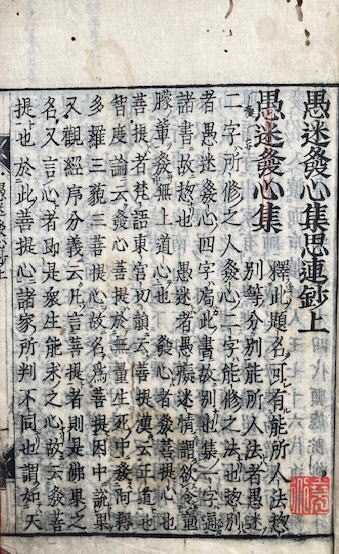 愚迷發心集思連鈔上
愚迷發心集
釋此題名可有能所人法揔
別等分別能所人法者愚迷
二字所修之人發心二字能修之法也揔別
者愚迷發心四字局此書故別也集一字通
諸書故揔也 愚迷者愚癡迷情謂欲令童
朦輩發無上道心也 發心者發菩提心也
菩提者梵語東宮切韻云菩提漢云正道也
智度論云發心菩提於無量生死中發阿耨
多羅三藐三菩提心故名為菩提因中說果
又觀經序分義云凡言菩提者則是佛果之
名又言心者即是衆生能求之心故云發菩
提也於此菩提心諸家所判不同也謂如天